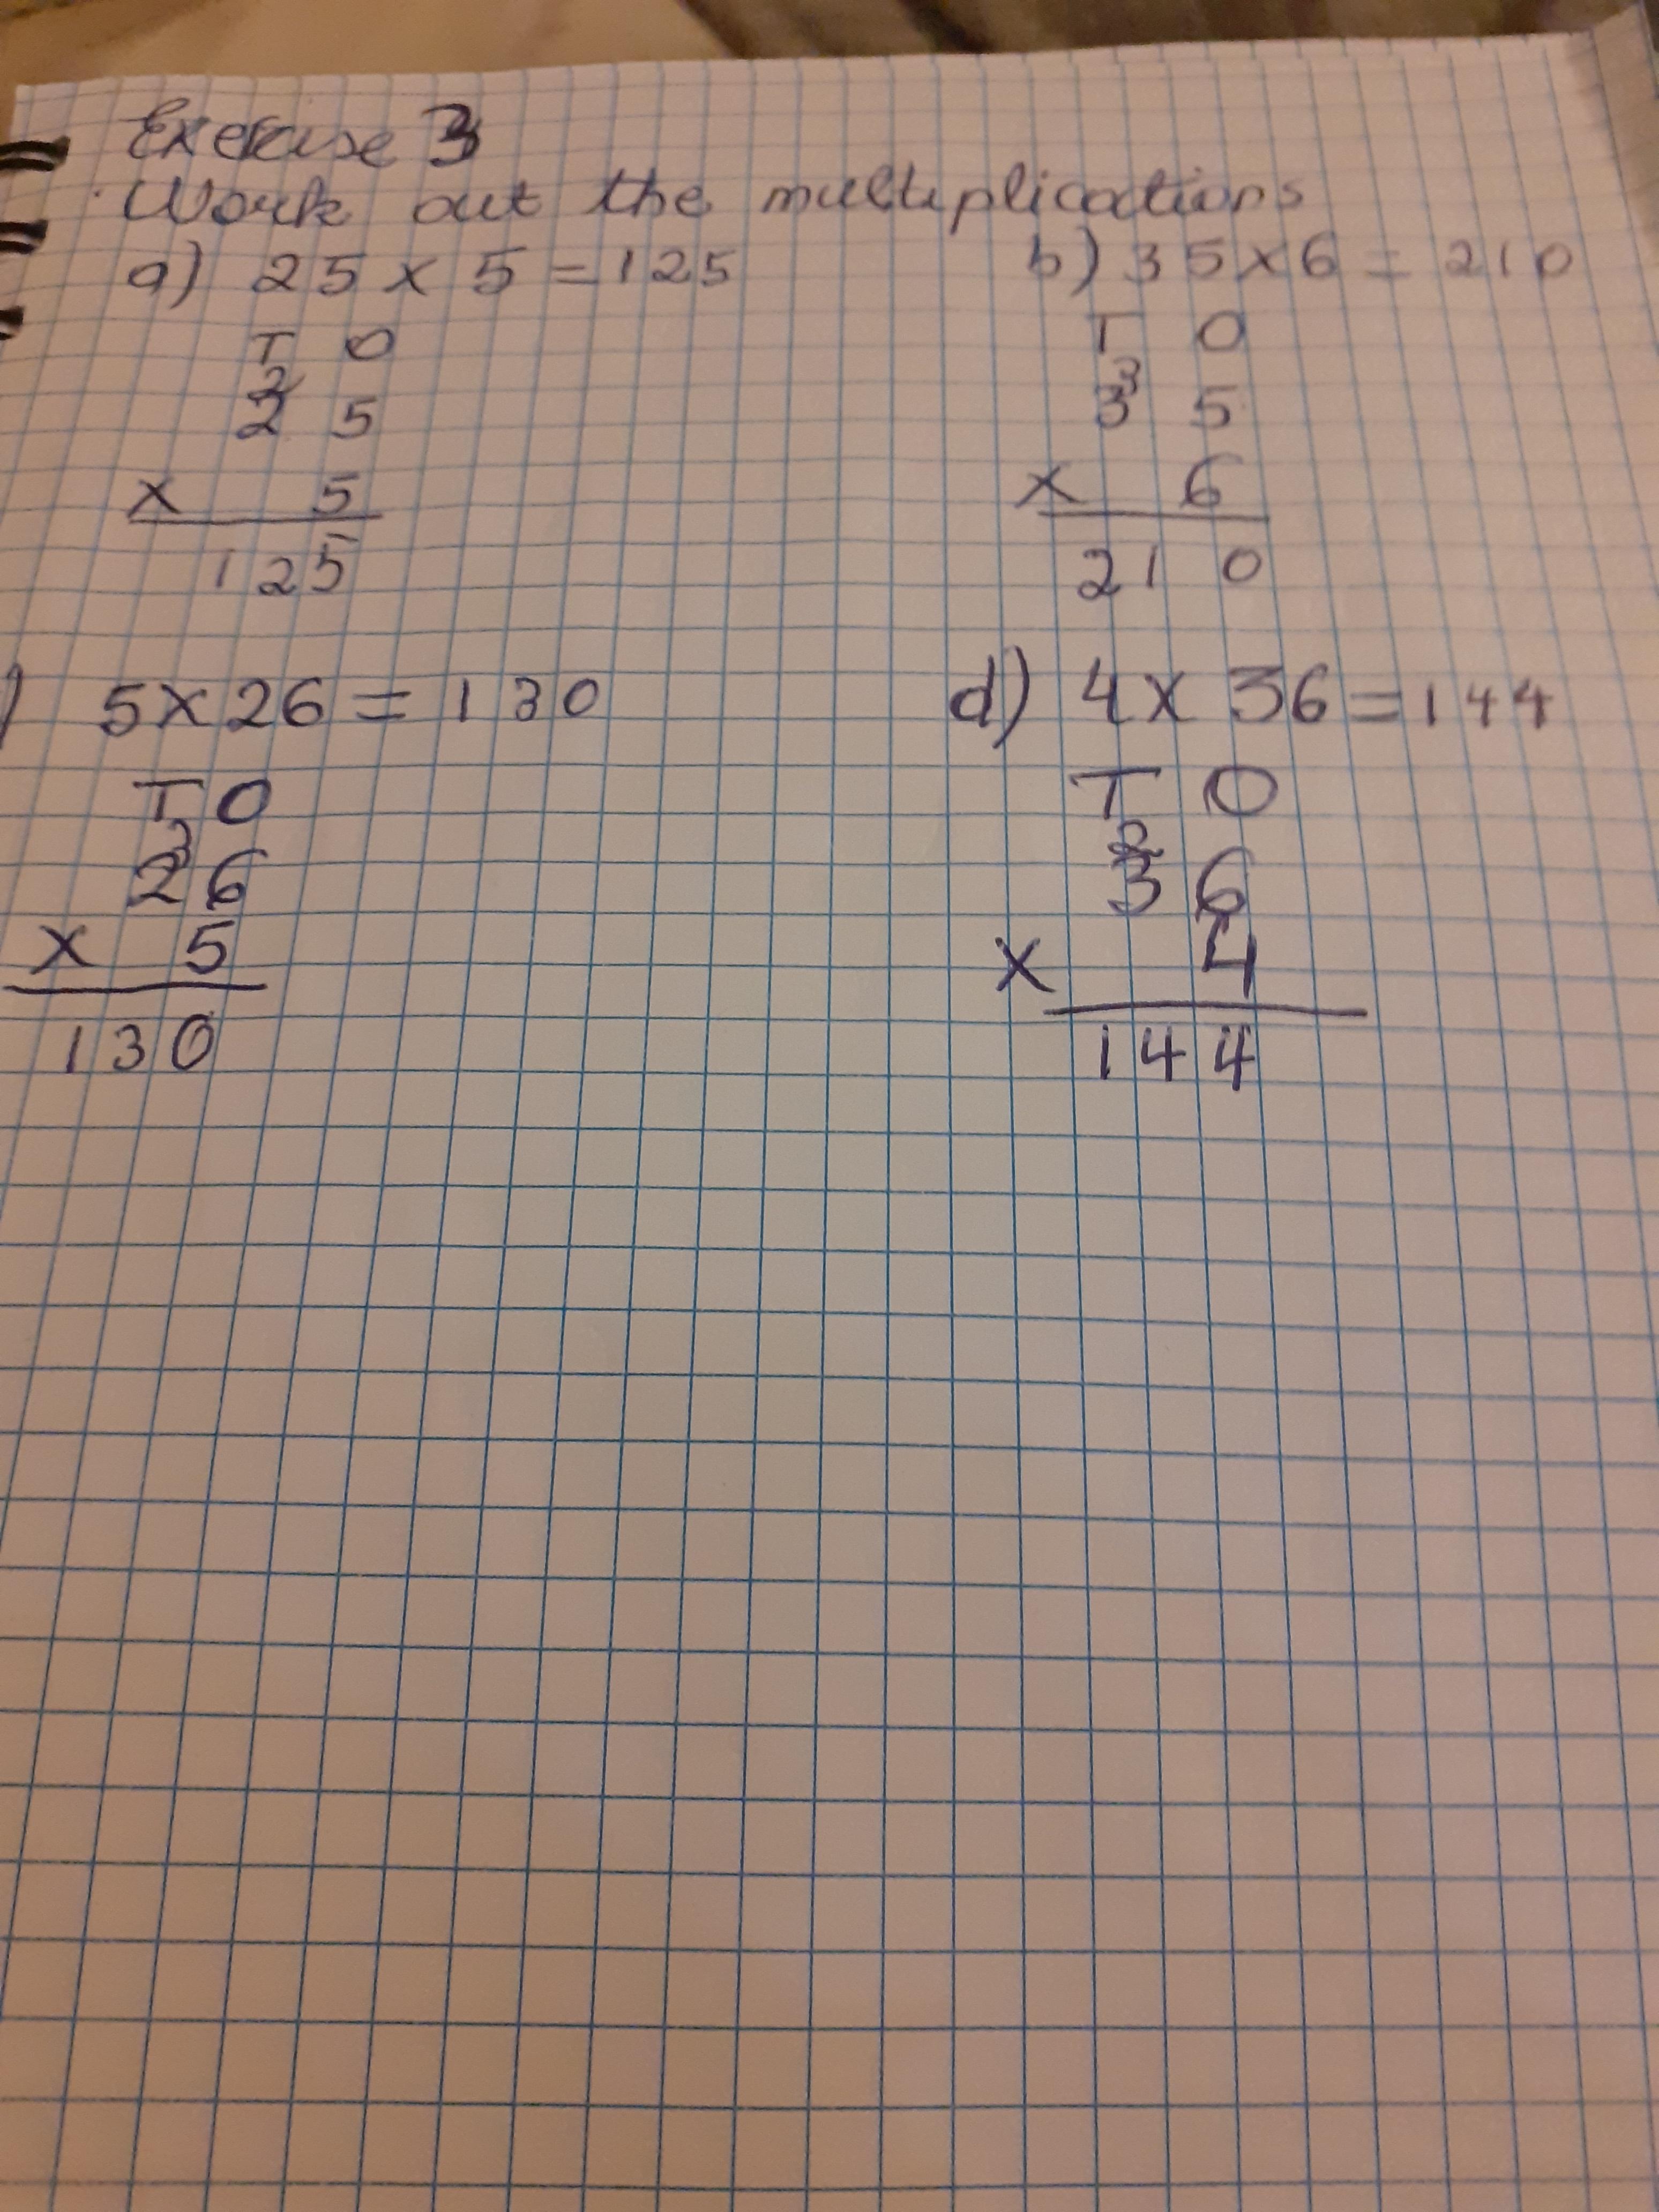 Exercise 3
Work out the multiplications
a) 25 x 5 = 125
T O
2
2 5
x 5
125
b) 35 x 6 = 210
T O
3
3 5
x 6
21 0
) 5x26 = 130
T O
3
26
x 5
130
d) 4x 36 = 144
T O
2
3 6
x 4
144